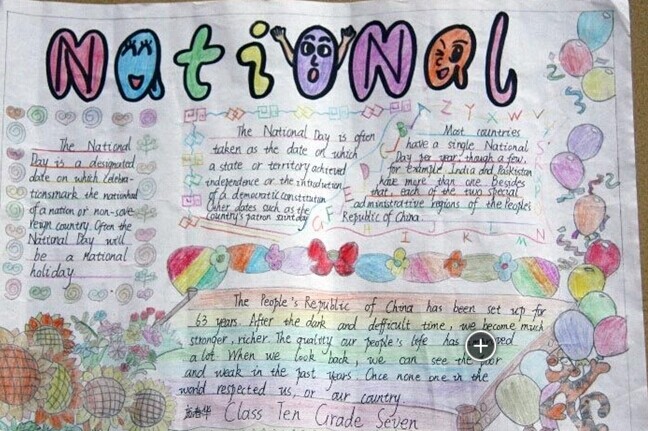 National
The National
Day is a designated
date on which celebra-
tionsmark the nationhood
of a nation or non-sove
reign country. Often the
National Day will
be a national
holiday.
The National Day is often
taken as the date on which
a state or territory achieved
independence or the introduction
of a democratic constitution
Other dates such as the
country's patron saint day
Z Y X W V
Most countries
have a single National
Day per year, though a few,
for example India and Pakistan
have more than one. Besides
that, each of the two special
administrative regions of the People's
Republic of China.
G H I J K L M N
The People's Republic of China has been set up for
63 years. After the dark and defficult time, we become much
stronger, richer. The quality our people's life has
a lot. When we look back, we can see the poor
and weak in the past years. Once none one in the
world respected us, or our country.
Class Ten Grade Seven